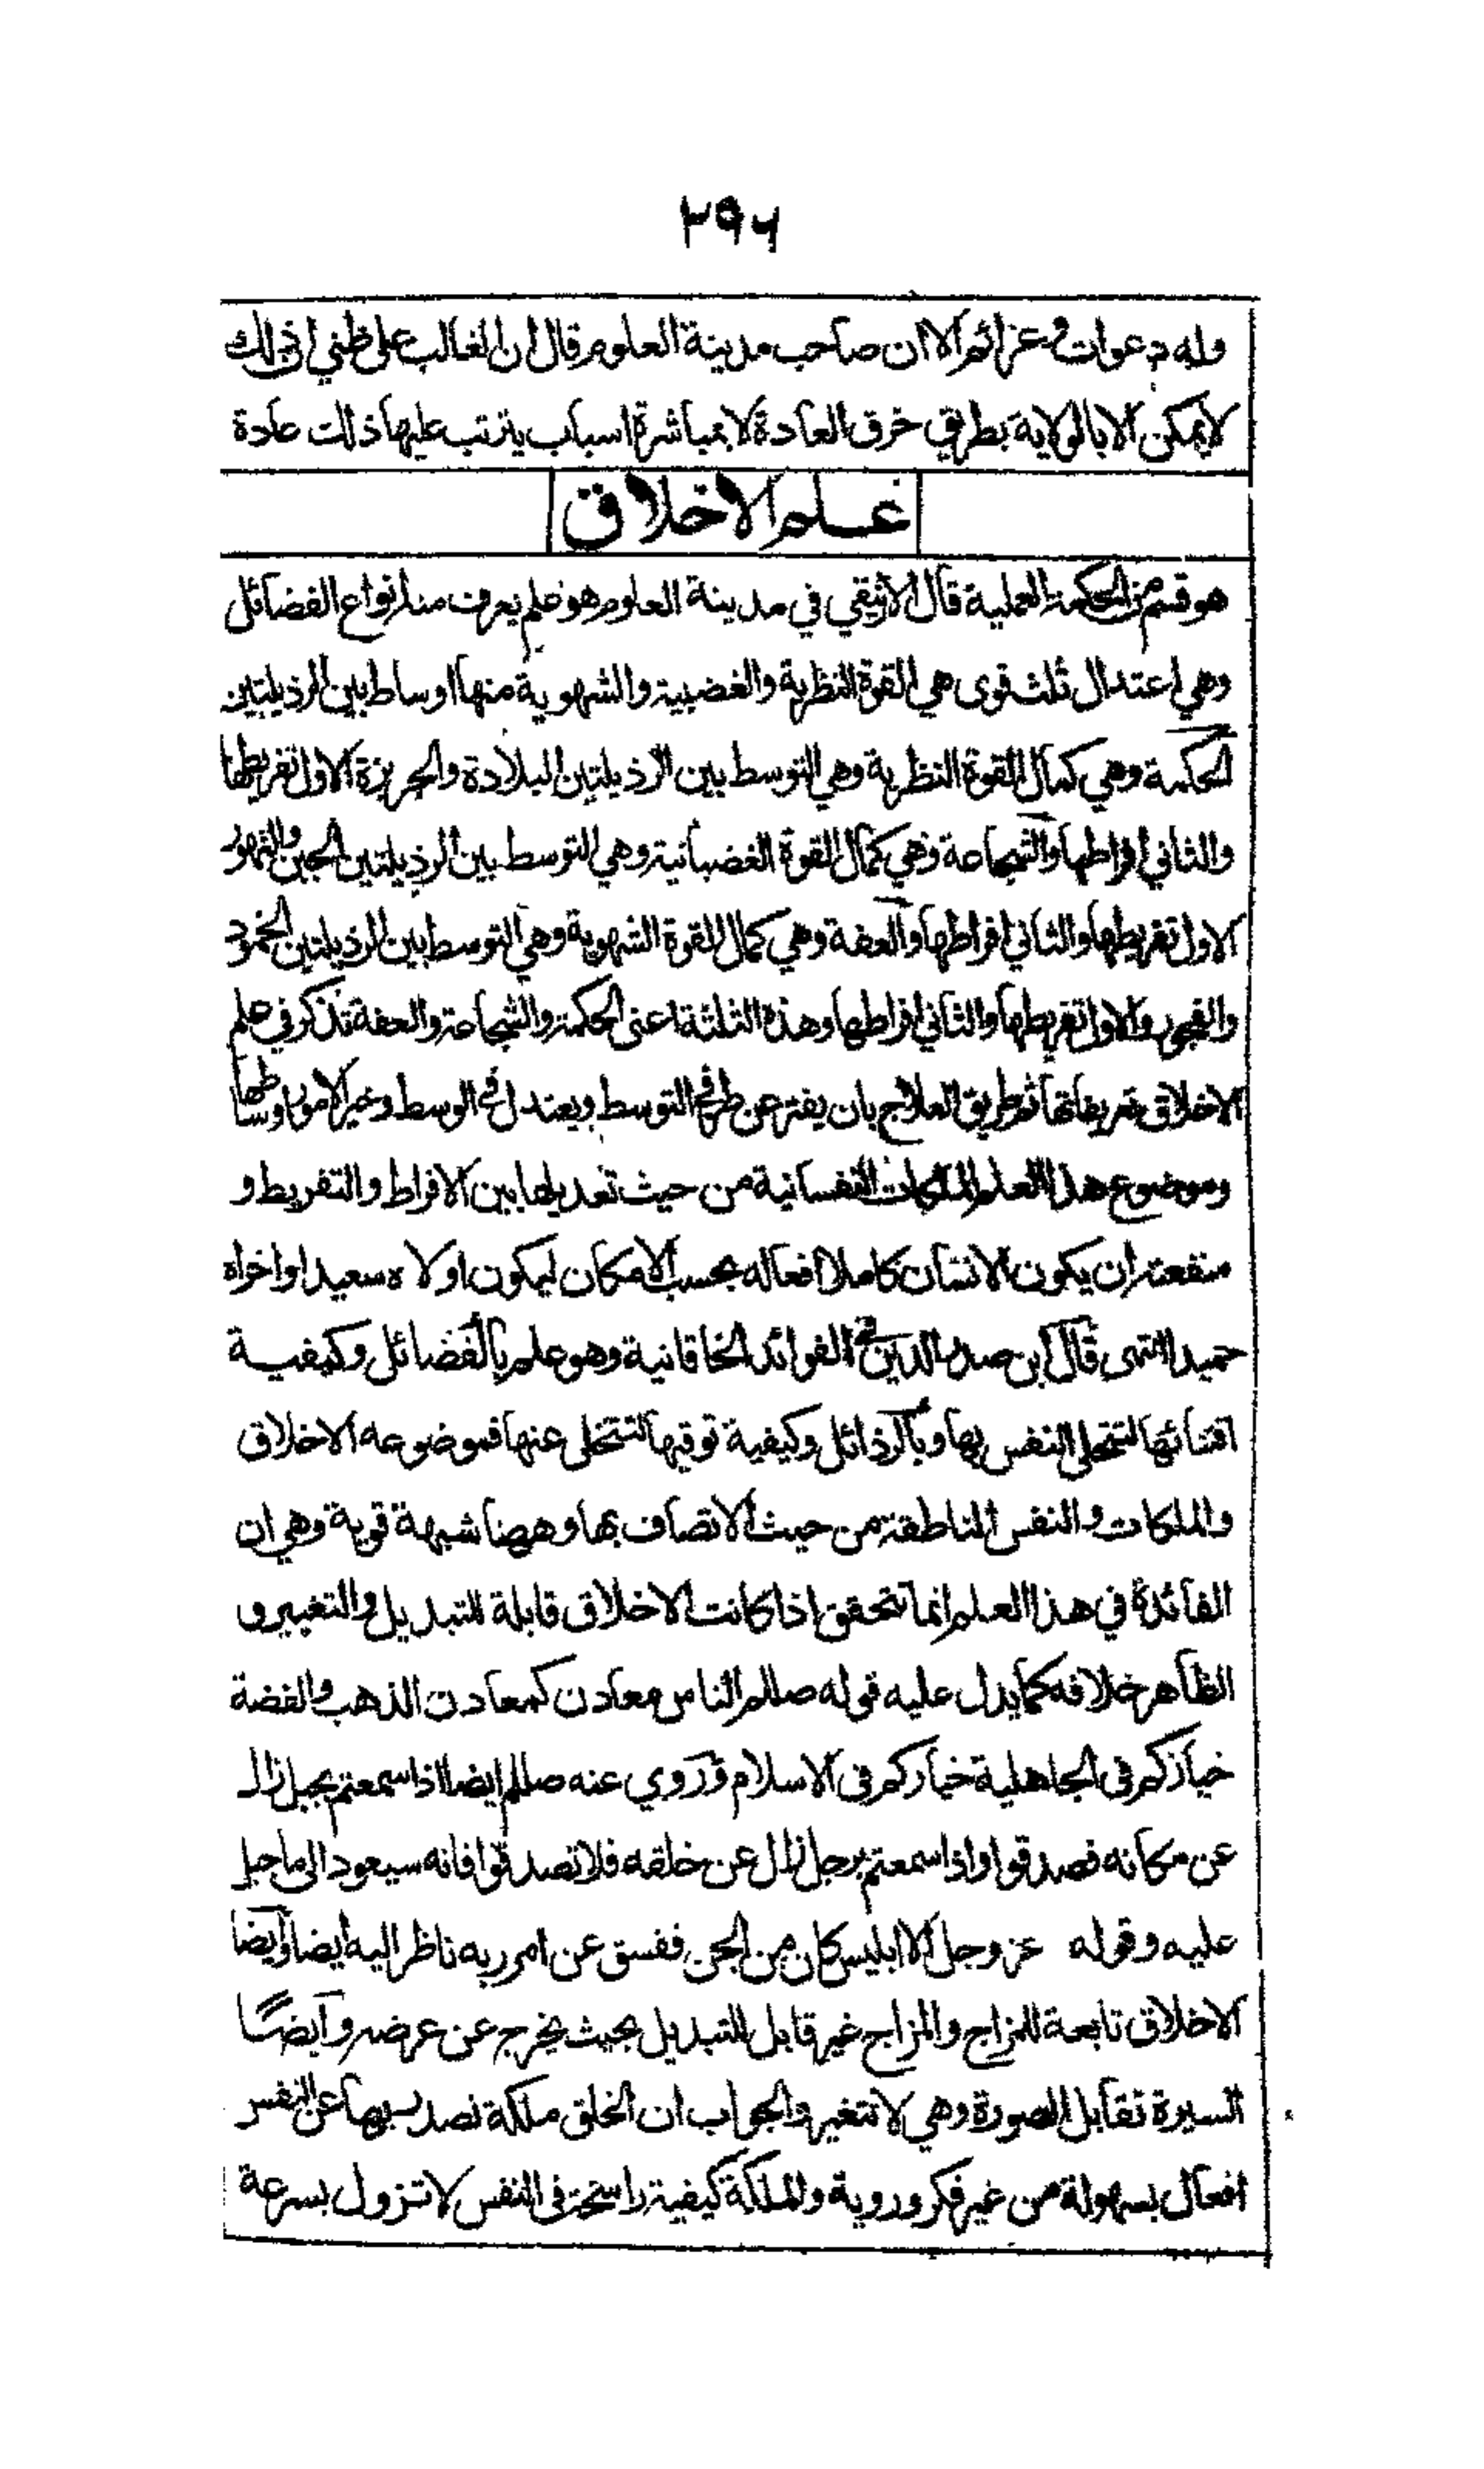 ٢٩٦
وله دعوات وعزائم الا ان صاحب مدينة العلوم قال ان الغالب على ظني ان ذلك
لا يمكن الا بالولاية بطريق خرق العادة لا بمباشرة اسباب يترتب عليها ذلك عادة
علم الاخلاق
هو قسم من الحكمة العملية قال الارنيقي في مدينة العلوم هو علم يعرف منه انواع الفضائل
وهي اعتدال ثلث قوى هي القوة النظرية والغضبية والشهوية منها اوساط بين الرذيلتين
الحكمة وهي كمال القوة النظرية وهي التوسط بين الرذيلتين البلادة والجربزة الاول تفريطها
والثاني افراطها والشجاعة وهي كمال القوة الغضبانية وهي التوسط بين الرذيلتين الجبن والتهور
الاول تفريطها والثاني افراطها والعفة وهي كمال القوة الشهوية وهي التوسط بين الرذيلتين الخمود
والفجور والاول تفريطها والثاني افراطها وهذه الثلثة اعنى الحكمة والشجاعة والعفة تذكر في علم
الاخلاق تعريفاتها ثم طريق العلاج بان يفتر عن طرفي التوسط ويعتدل في الوسط وخير الامور اوساطها
وموضوع هذا العلم الملكات النفسانية من حيث تعديلها بين الافراط والتفريط و
منفعته ان يكون الانسان كاملا افعاله بحسب الامكان ليكون اولاه سعيدا واخراه
حميدا انتهى قال ابن صدر الدين في الفوائد الخاقانية وهو علم بالفضائل وكيفية
اقتنائها لتتحلى النفس بها وبالرذائل وكيفية توقيها لتتخلى عنها فموضوعه الاخلاق
والملكات والنفس الناطقة من حيث الاتصاف بها وههنا شبهة قوية وهي ان
الفائدة في هذا العلم انما تتحقق اذا كانت الاخلاق قابلة للتبديل والتغيير و
الظاهر خلافه كما يدل عليه قوله صللم الناس معادن كمعادن الذهب والفضة
خياركم في الجاهلية خياركم في الاسلام وروي عنه صللم ايضا اذا سمعتم بجبل زال
عن مكانه فصدقوا واذا سمعتم برجل زال عن خلقه فلا تصدقوا فانه سيعود الى ما جبل
عليه وقوله عز وجل الا ابليس كان من الجن ففسق عن امر ربه ناظر اليه ايضا وايضا
الاخلاق تابعة للمزاج والمزاج غير قابل للتبديل بحيث يخرج عن عرضه وايضًا
السيرة تقابل الصورة وهي لا تتغير والجواب ان الخلق ملكة تصدر بها عن النفس
افعال بسهولة من غير فكر وروية والملكة كيفية راسخة في النفس لا تزول بسرعة